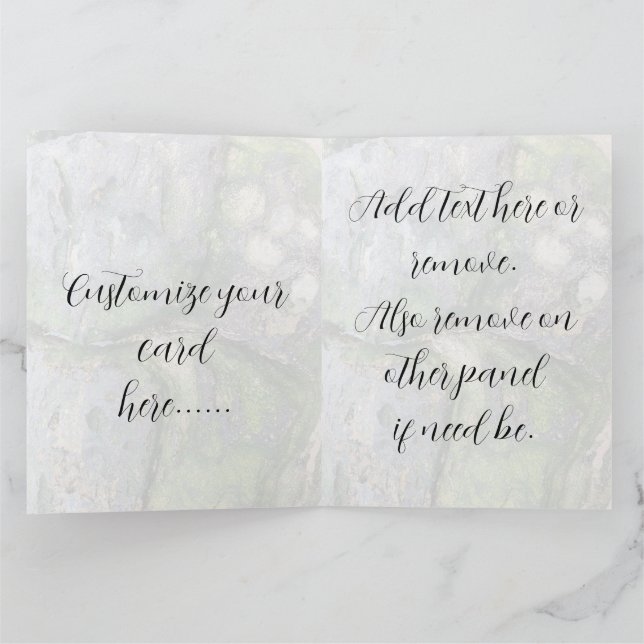 Customize your
card
here......
Add text here or
remove.
Also remove on
other panel
if need be.